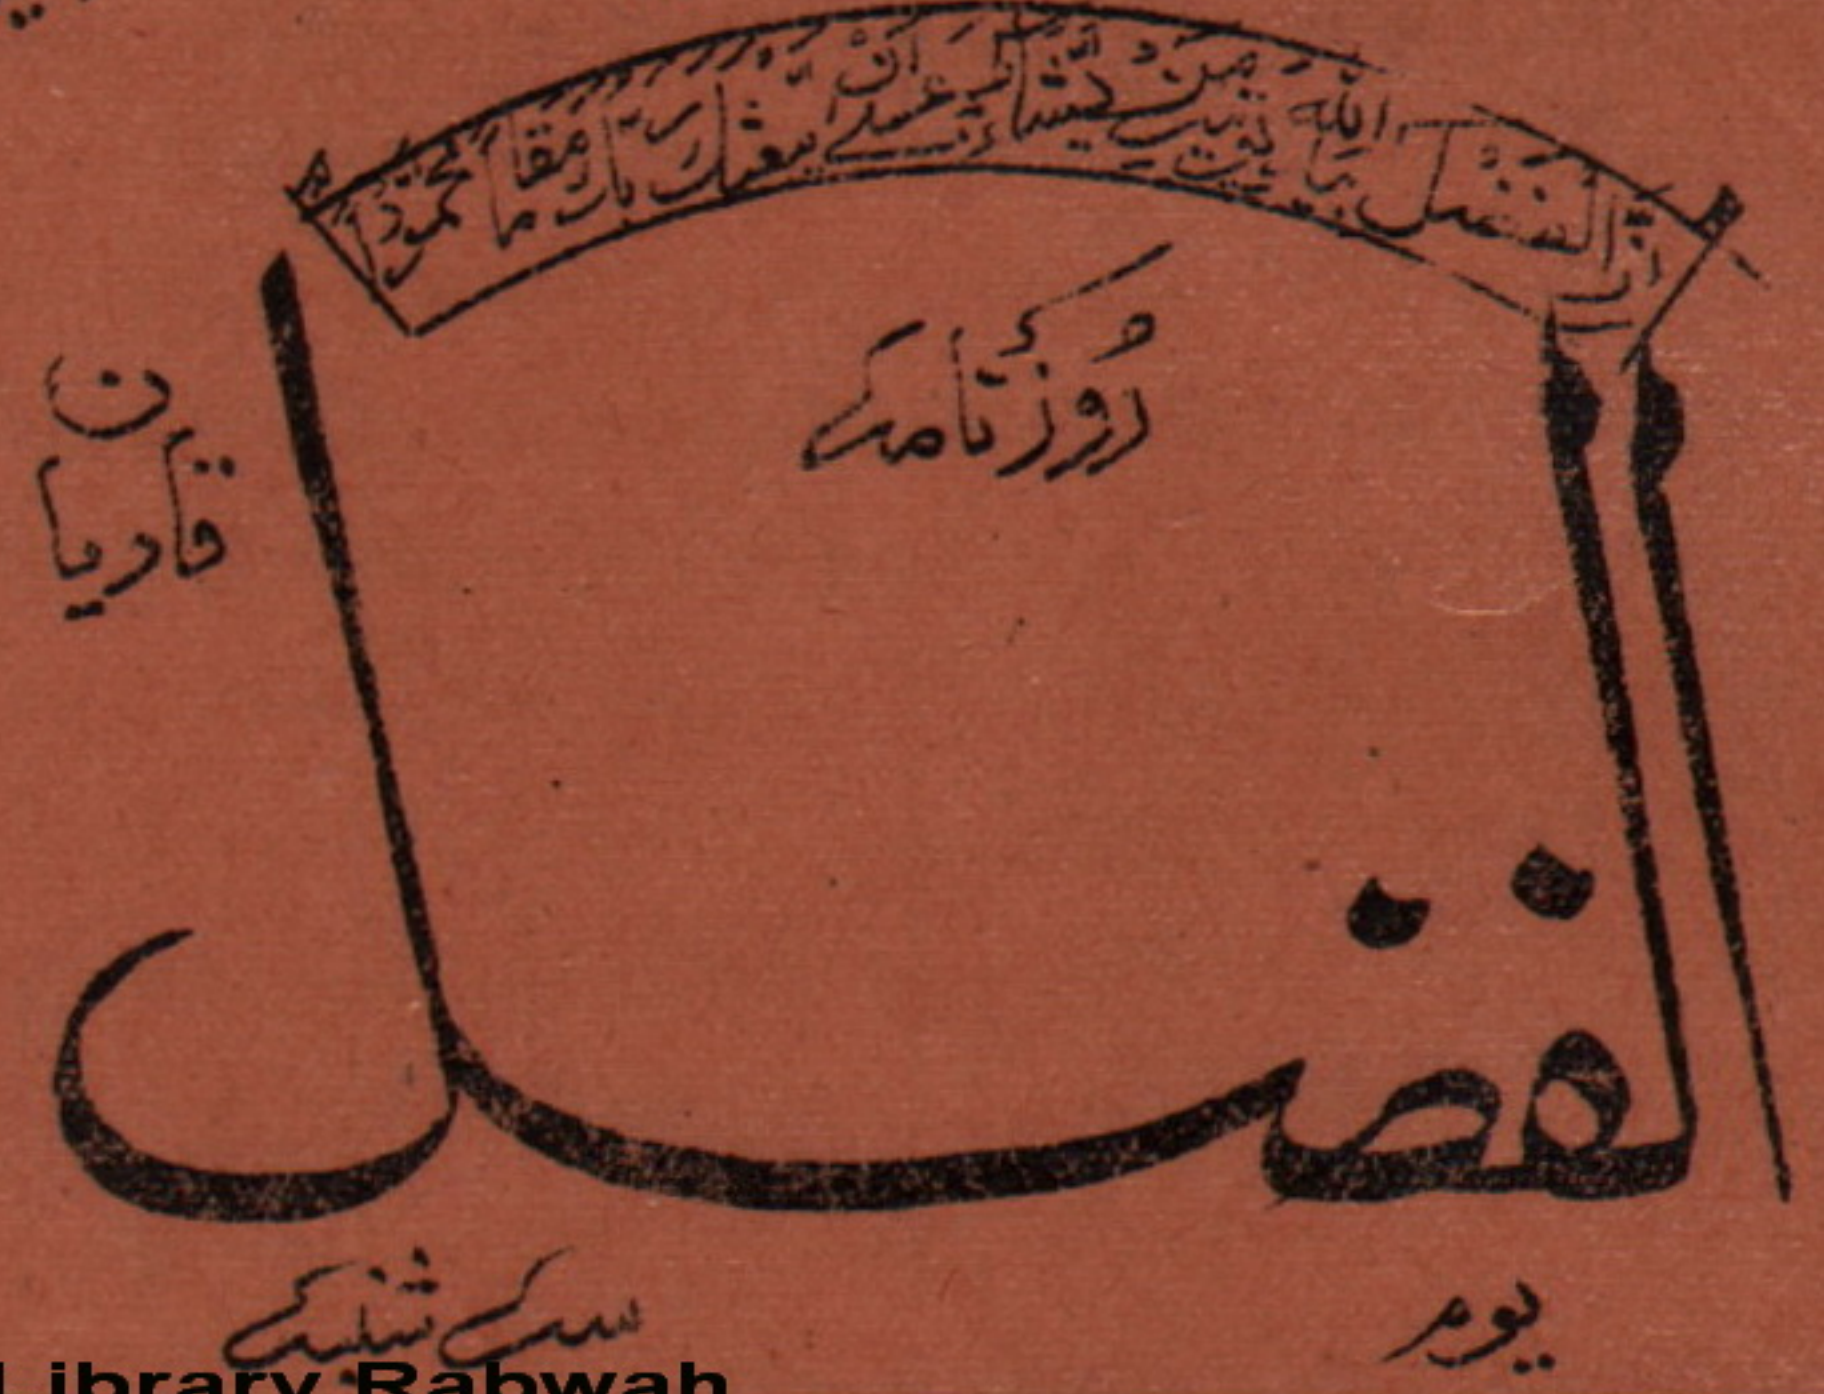 ان الفضل بید اللہ یؤتیہ من یشاء عسیٰ ان یبعثک ربک مقاما محمودا
روزنامہ
قادیان
الفضل
یوم سہ شنبہ
Library Rabwah